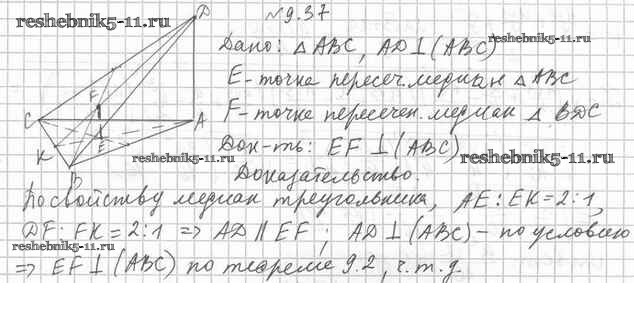 №9.37
reshebnik5-11.ru
D
Дано: △ABC, AD⊥(ABC)
reshebnik5-11.ru
E - точка пересеч. медиан △ABC
F - точка пересечен. медиан △ BDC
F
C
A
K
E
B
Док-ть: EF⊥(ABC)
reshebnik5-11.ru
reshebnik5-11.ru
Доказательство.
По свойству медиан треугольника, AE:EK=2:1,
DF:FK=2:1 ⇒ AD∥EF; AD⊥(ABC) - по условию
reshebnik5-11.ru
⇒ EF⊥(ABC) по теореме 9.2, ч.т.д.